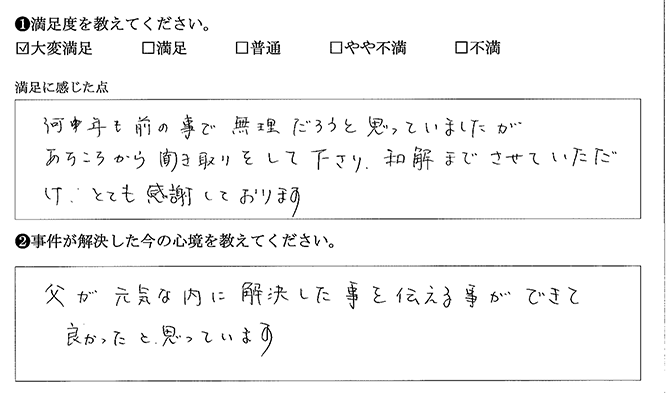 ❶満足度を教えてください。
☑大変満足 □満足 □普通 □やや不満 □不満
満足に感じた点
何十年も前の事で無理だろうと思っていましたが
あちこちから聞き取りをして下さり、和解までさせていただ
け、とても感謝しております
❷事件が解決した今の心境を教えてください。
父が元気な内に解決した事を伝える事ができて
良かったと思っています